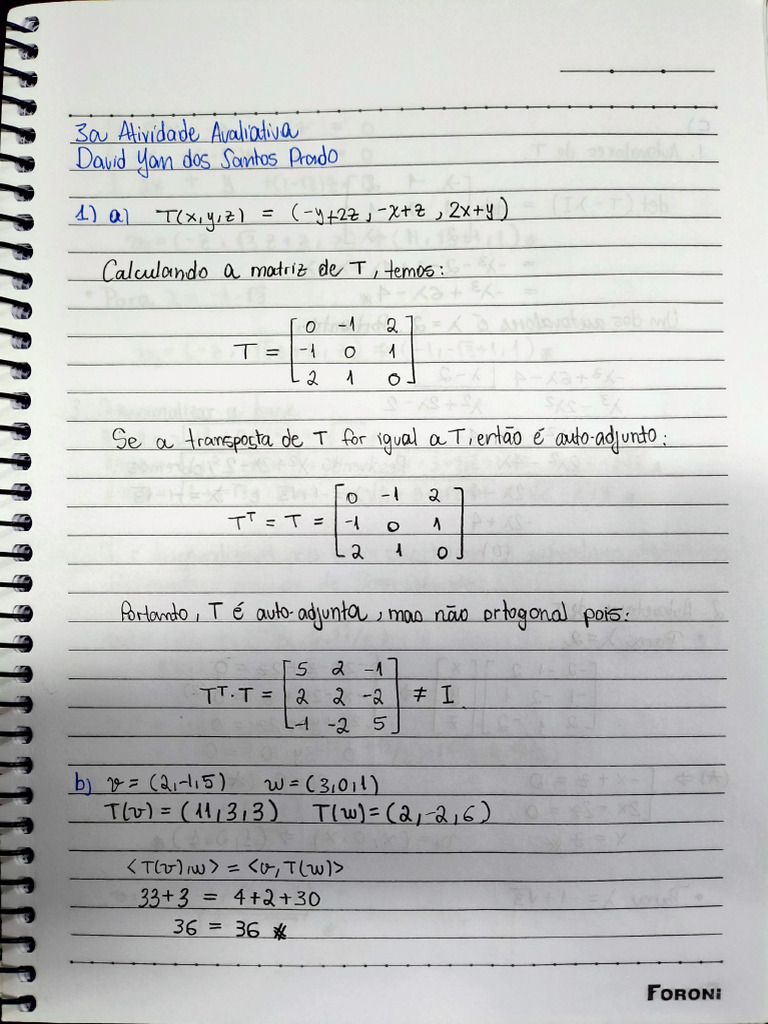 3a Atividade Avaliativa
David Yan dos Santos Prado
1) a) T(x,y,z) = (-y+2z, -x+z, 2x+y)
Calculando a matriz de T, temos:
T = [0 -1 2
-1 0 1
2 1 0]
Se a transposta de T for igual a T, então é auto-adjunto:
Tᵀ = T = [0 -1 2
-1 0 1
2 1 0]
Portando, T é auto-adjunta, mas não ortogonal pois:
Tᵀ·T = [5 2 -1
2 2 -2
-1 -2 5] ≠ I.
b) v = (2,-1,5) w = (3,0,1)
T(v) = (11,3,3) T(w) = (2,-2,6)
<T(v),w> = <v,T(w)>
33+3 = 4+2+30
36 = 36 *
FORONI